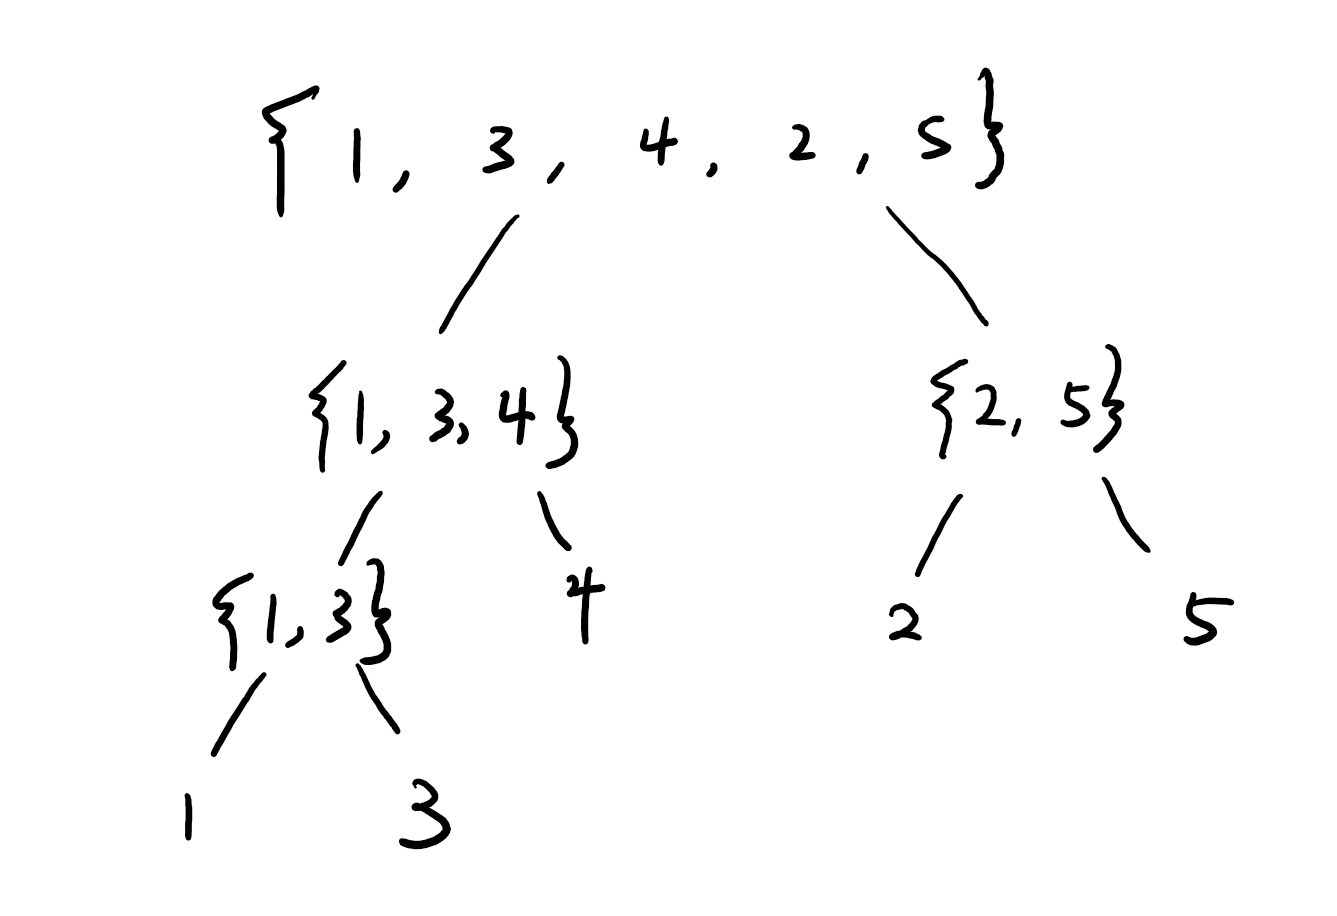 {1, 3, 4, 2, 5}
{1, 3, 4} {2, 5}
{1, 3} 4 2 5
1 3